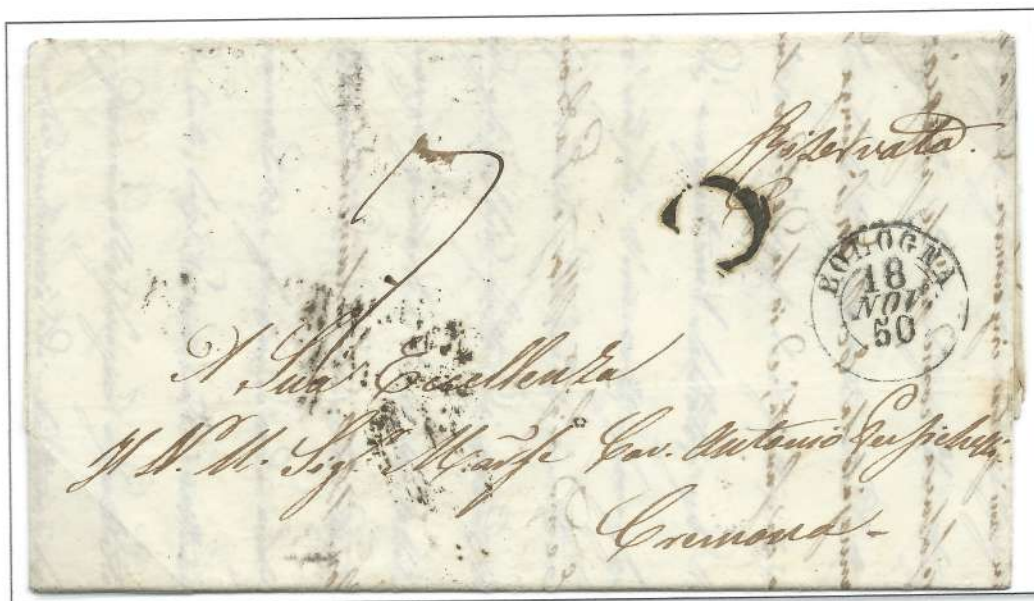 Riservata.
BOLOGNA
18
NOV
50
A Sua Eccellenza
Il N. U. Sig. March Cav. Antonio
Cremona -